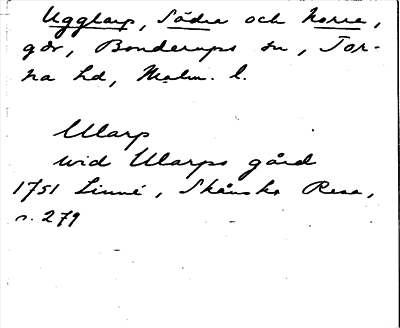 Ugglarp, Södra och Norra,
gdr, Bonderups sn, Tor-
na hd, Malm. l.
Ularp
wid Ularps gård
1751 Linné, Skånska Resa,
s. 279